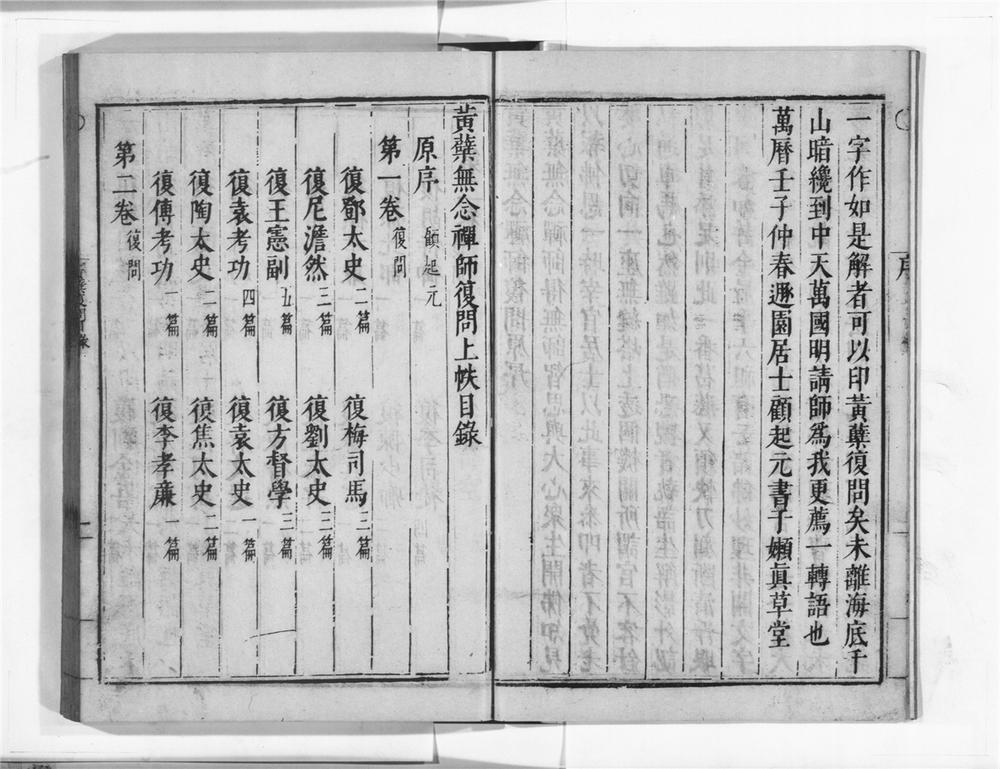 一字作如是解者可以印黃蘗復問矣未離海底千
山暗纔到中天萬國明請師為我更薦一轉語也
萬曆壬子仲春遯園居士顧起元書于嬾真草堂
序
黃蘗無念禪師復問上帙目錄
原序 顧起元
第一卷 復問
復鄧太史 二篇 復梅司馬 三篇
復尼澹然 三篇 復劉太史 三篇
復王憲副 五篇 復方督學 三篇
復袁考功 四篇 復袁太史 一篇
復陶太史 一篇 復焦太史 二篇
復傅考功 一篇 復李孝廉 一篇
第二卷 復問